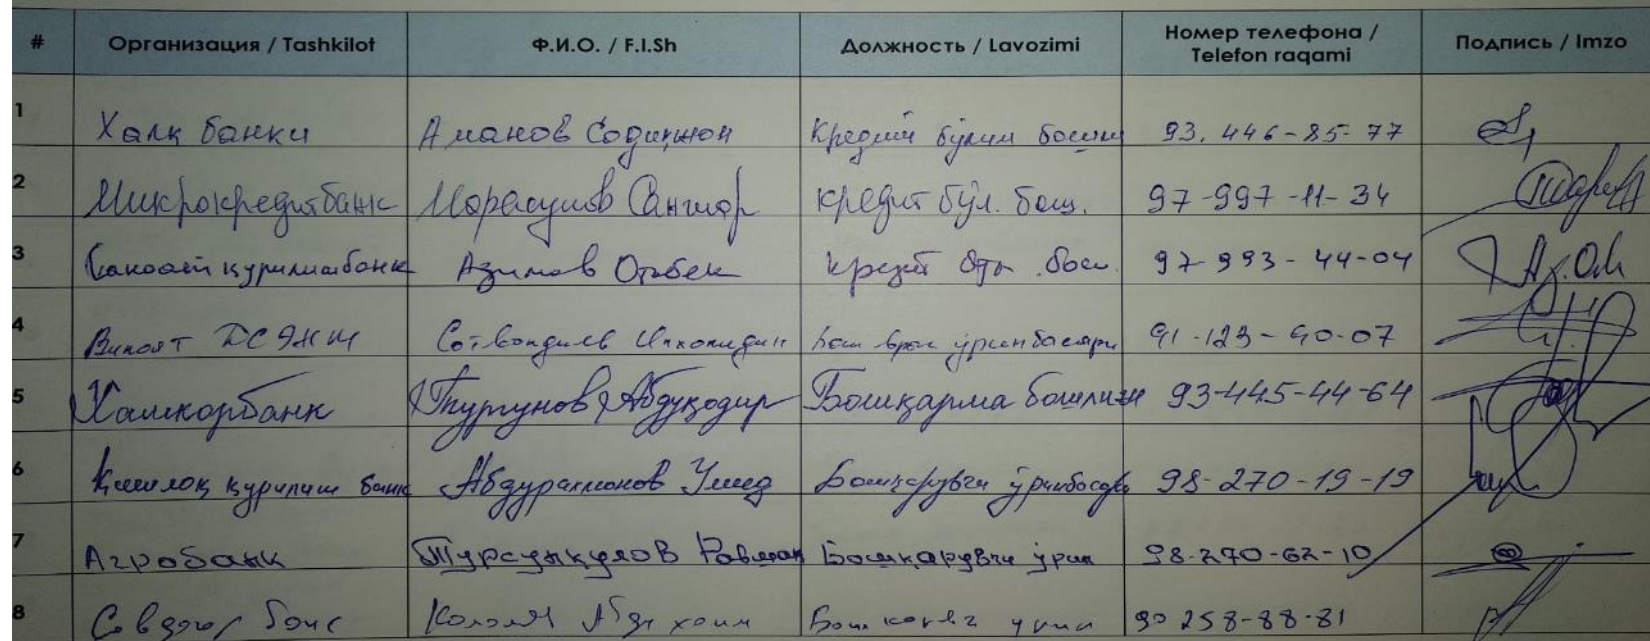 # Организация / Tashkilot Ф.И.О. / F.I.Sh Должность / Lavozimi Номер телефона / Telefon raqami Подпись / Imzo
1 Халқ банки Аманов Содиқжон Кредит бўлим бошли 93. 446-85-77
2 Микрокредитбанк Санжар кредит бўл. бош. 97-997-11-34
3 Саноат қурилишбанк Азимов Отабек кредит бош. 97-993-44-04
4 Вилоят ДСЭНМ Бош врач ўринбосари 91-123-90-07
5 Хамкорбанк Турғунов Абдуқодир Бошқарма бошлиғи 93-445-44-64
6 Қишлоқ қурилиш банк Абдурахмонов Умид Бошқарувчи ўринбосари 98-270-19-19
7 Агробанк Турсункулов Равшан Бошкарувчи ўрин 98-270-62-10
8 90 258-88-81